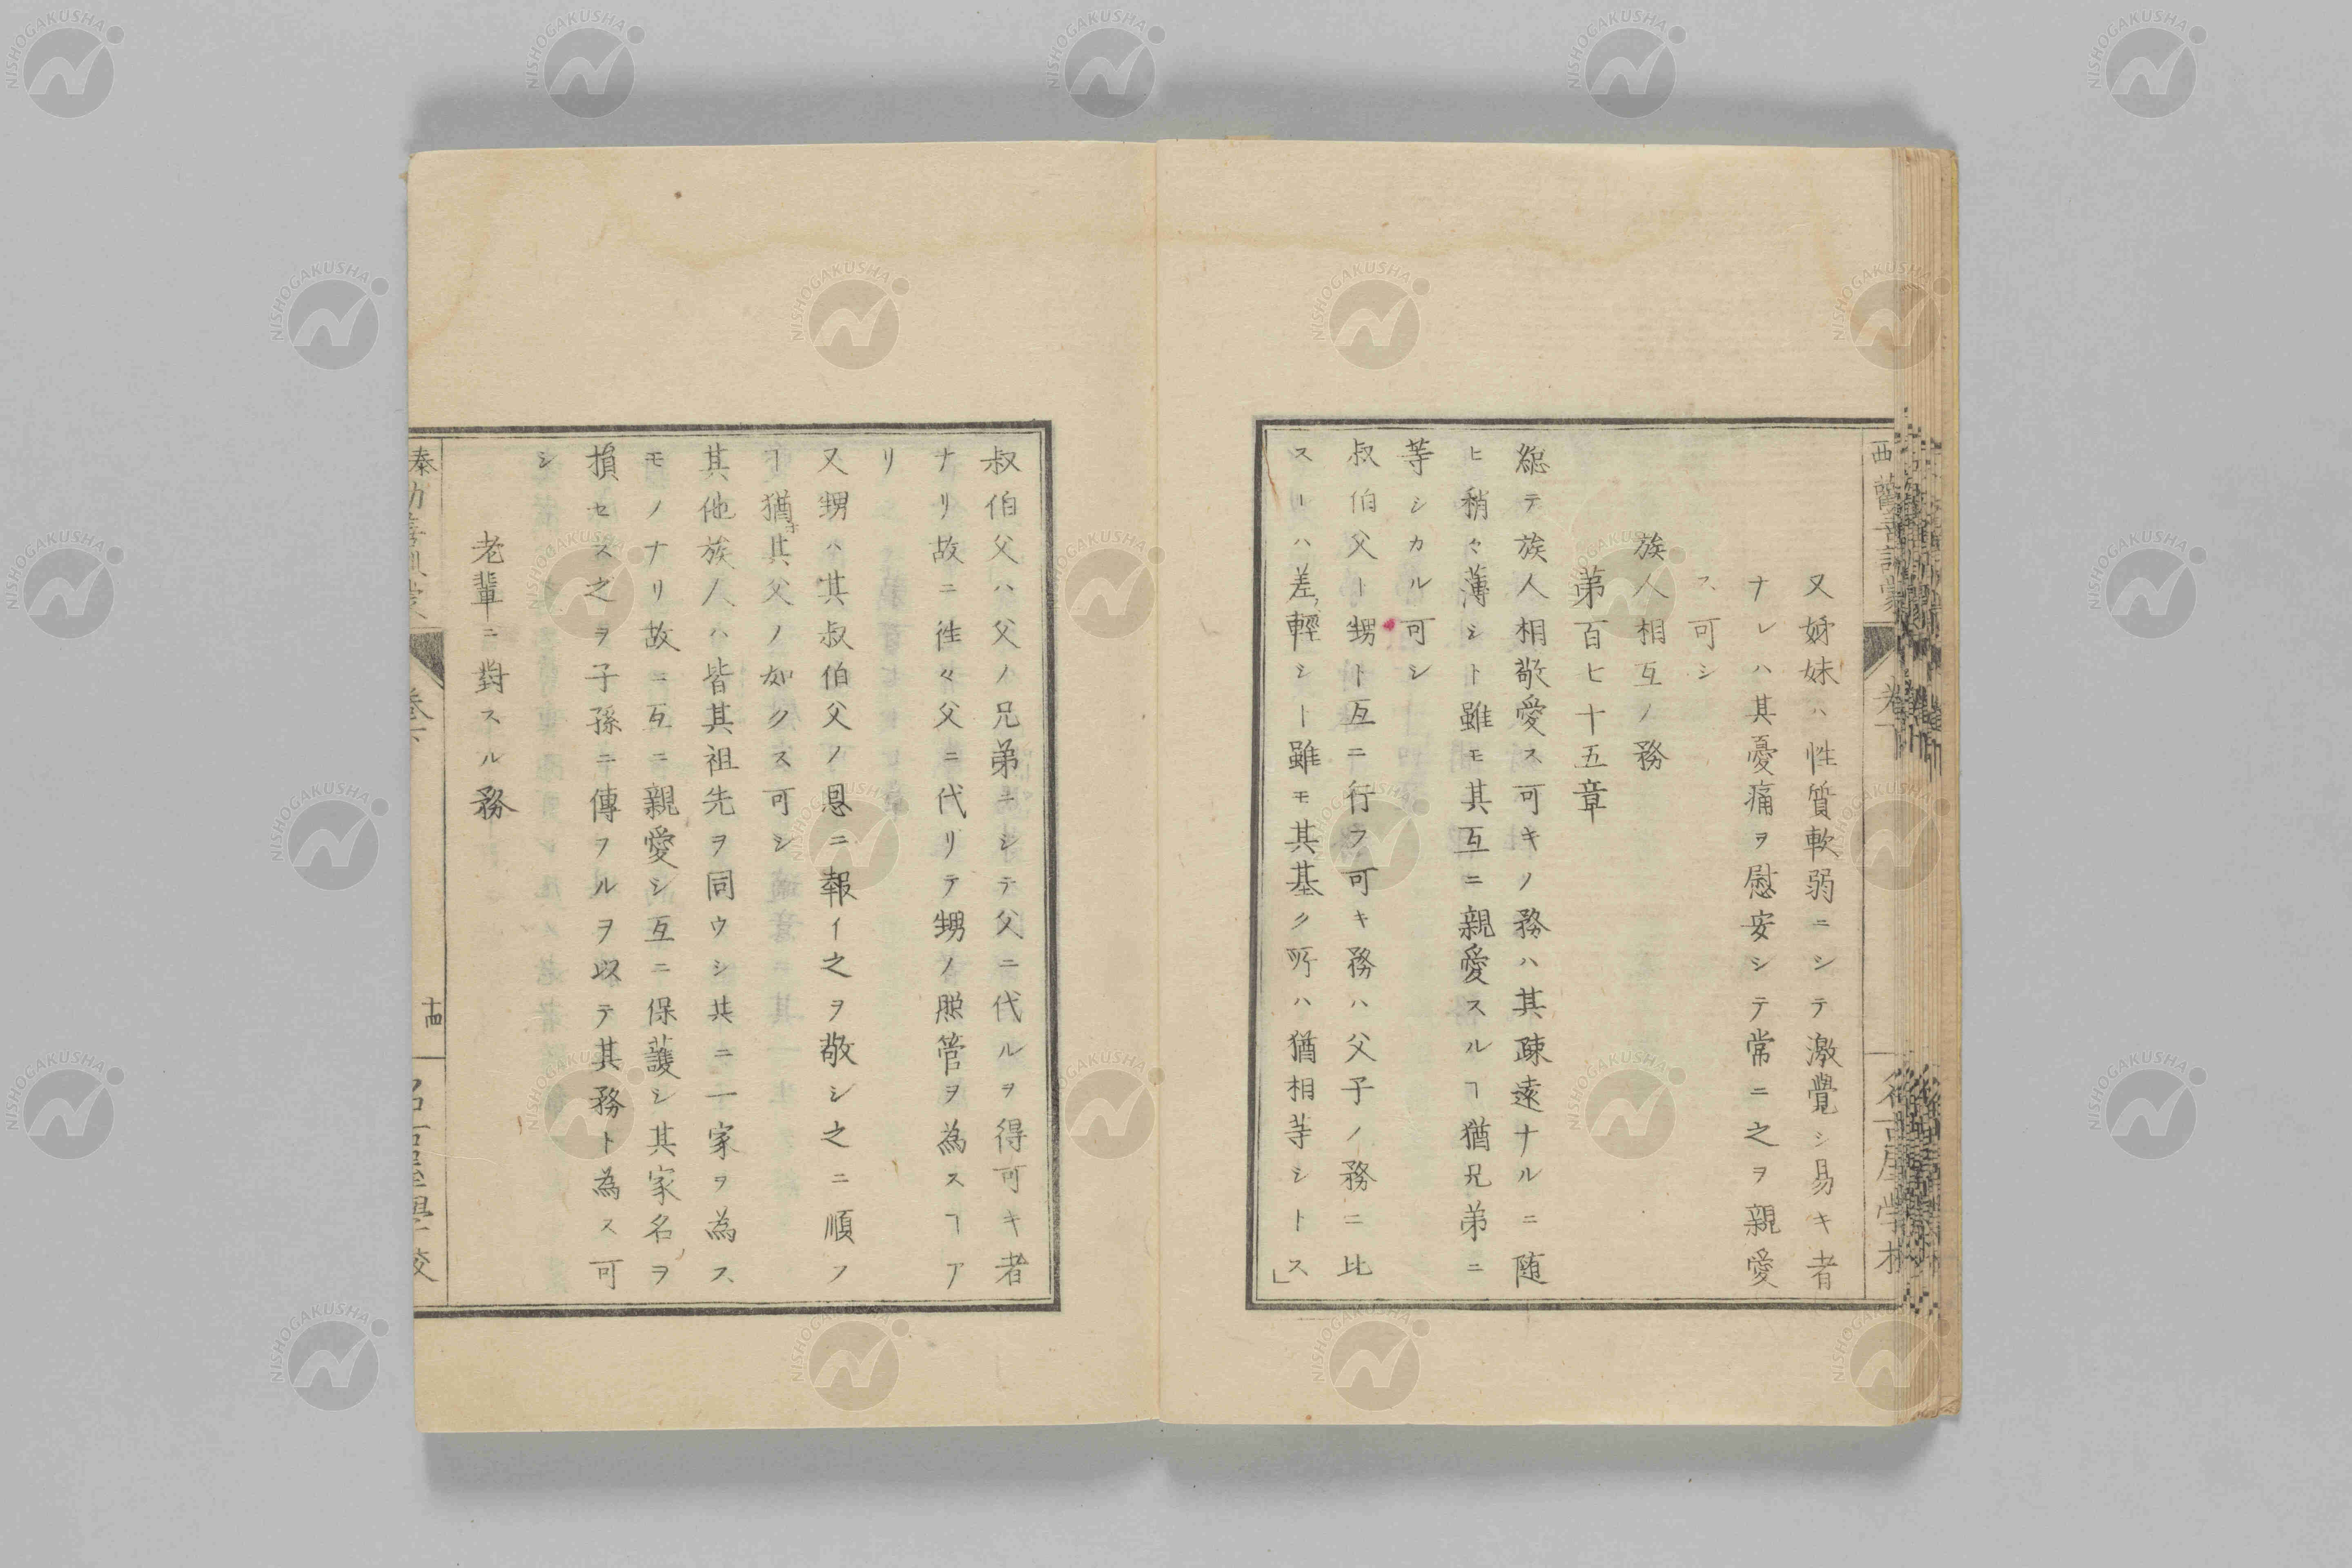 又姊妹ハ性質軟弱ニシテ激覺シ易キ者
ナレハ其憂痛ヲ慰安シテ常ニ之ヲ親愛
ス可シ
族人相互ノ務
第百七十五章
総テ族人相敬愛ス可キノ務ハ其疎遠ナルニ随
ヒ稍々薄シト雖モ其互ニ親愛スルヿ猶兄弟ニ
等シカル可シ
叔伯父ト甥ト互ニ行フ可キ務ハ父子ノ務ニ比
スレハ差輕シト雖モ其基ク所ハ猶相等シトス」
叔伯父ハ父ノ兄弟ニシテ父ニ代ルヲ得可キ者
ナリ故ニ徃々父ニ代リテ甥ノ照管ヲ為スヿア
リ
又甥ハ其叔伯父ノ恩ニ報イ之ヲ敬シ之ニ順フ
ヿ猶ホ其父ノ如クス可シ
其他族人ハ皆其祖先ヲ同ウシ共ニ一家ヲ為ス
モノナリ故ニ互ニ親愛シ互ニ保護シ其家名ヲ
損セス之ヲ子孫ニ傳フルヲ以テ其務ト為ス可
シ
老輩ニ對スル務
十四
NISHOGAKUSHA